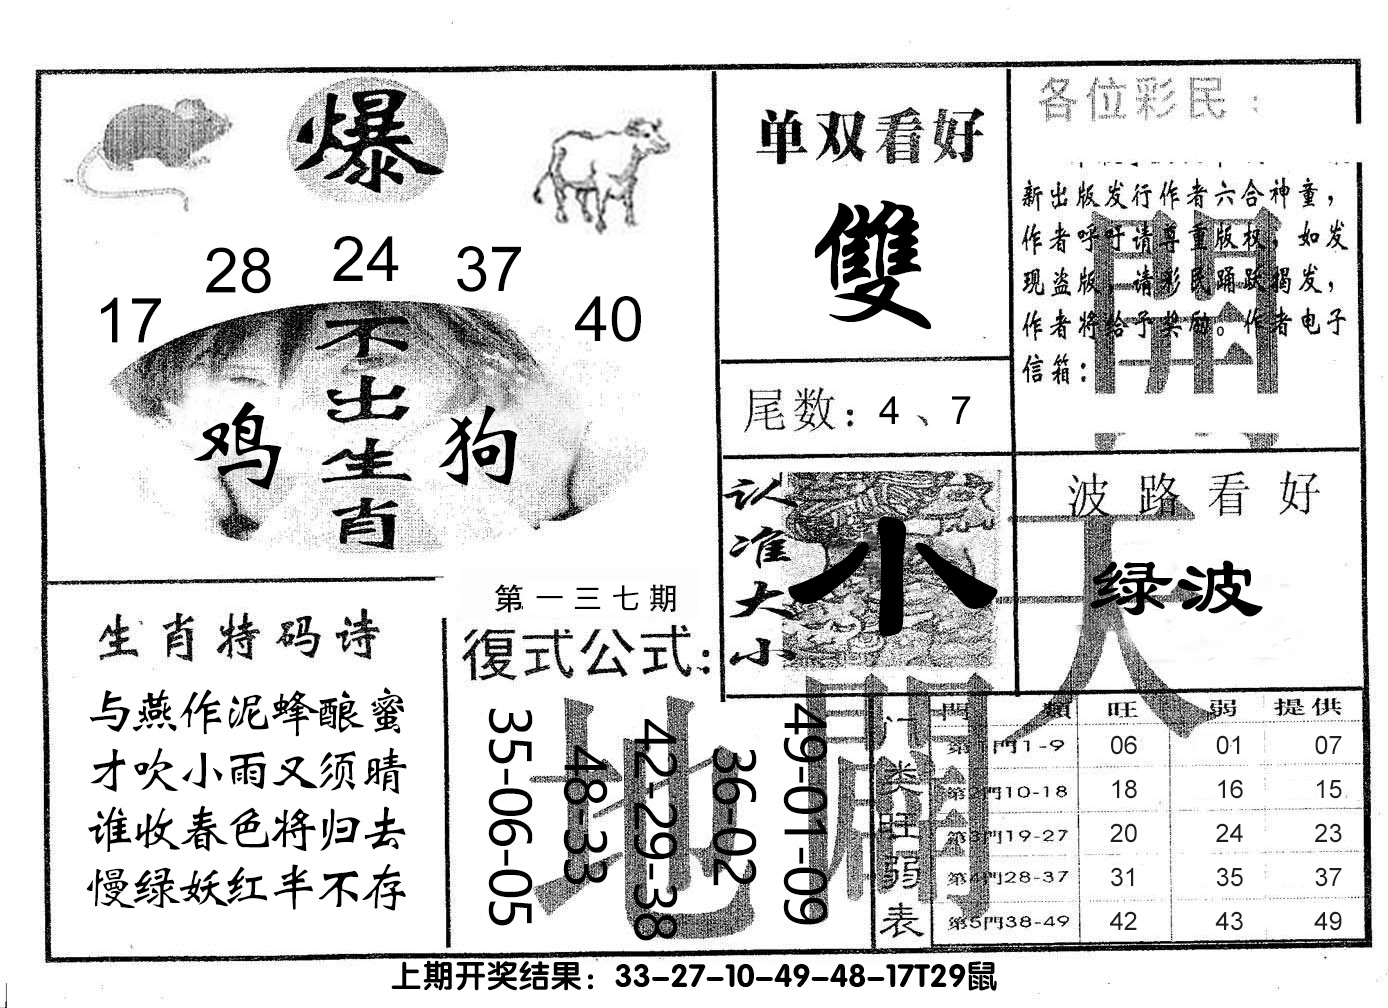 爆
17 28 24 37 40
不出生肖
鸡 狗
单双看好
雙
尾数：4、7
各位彩民：
新出版发行作者六合神童，
作者呼吁请尊重版权，如发
现盗版，请彩民踊跃揭发，
作者将给予奖励。作者电子
信箱：
開
认准大小
小
波路看好
绿波
天
生肖特码诗
与燕作泥蜂酿蜜
才吹小雨又须晴
谁收春色将归去
慢绿妖红半不存
第一三七期
復式公式：
35-06-05
48-33
42-29-38
36-02
49-01-09
地
門类旺弱表
門類 旺 弱 提供
第1門1-9 06 01 07
第2門10-18 18 16 15
第3門19-27 20 24 23
第4門28-37 31 35 37
第5門38-49 42 43 49
上期开奖结果：33-27-10-49-48-17T29鼠